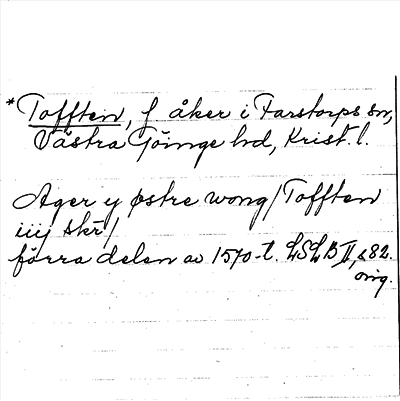 * Tofften, f åker i Farstorps sn,
Västra Göinge hd, Krist. l.
Ager y østre wong / Tofften
iiij skr /
förra delen av 1570-t. LSLB II, s 82.
orig.